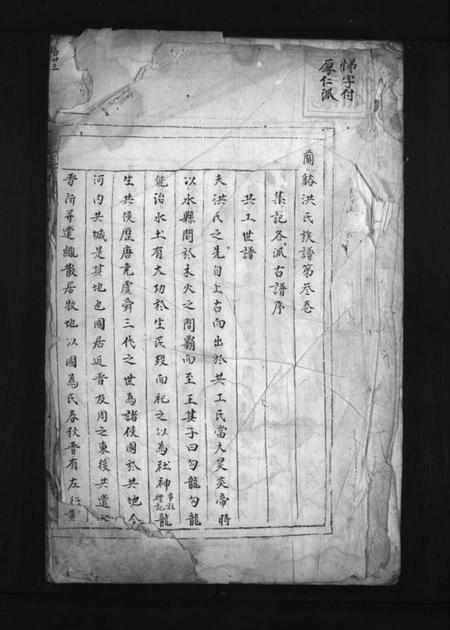 悌字付
厚仁派
蘭谿洪氏族譜第叁卷
集記各派古譜序
共工世譜
夫洪氏之先自上古而出於共工氏當大昊炎帝時
以水縣間於木火之間霸而至王其子曰勾龍勾龍
能治水土有大功於生民歿而祀之以為社神事社禮記龍
生共侯歷唐堯虞舜三代之世為諸侯國於共地今
河內共城是其地也國居近晋及周之東後共遭
晋所并遺繩散居牧地以國為氏春秋晋有左行